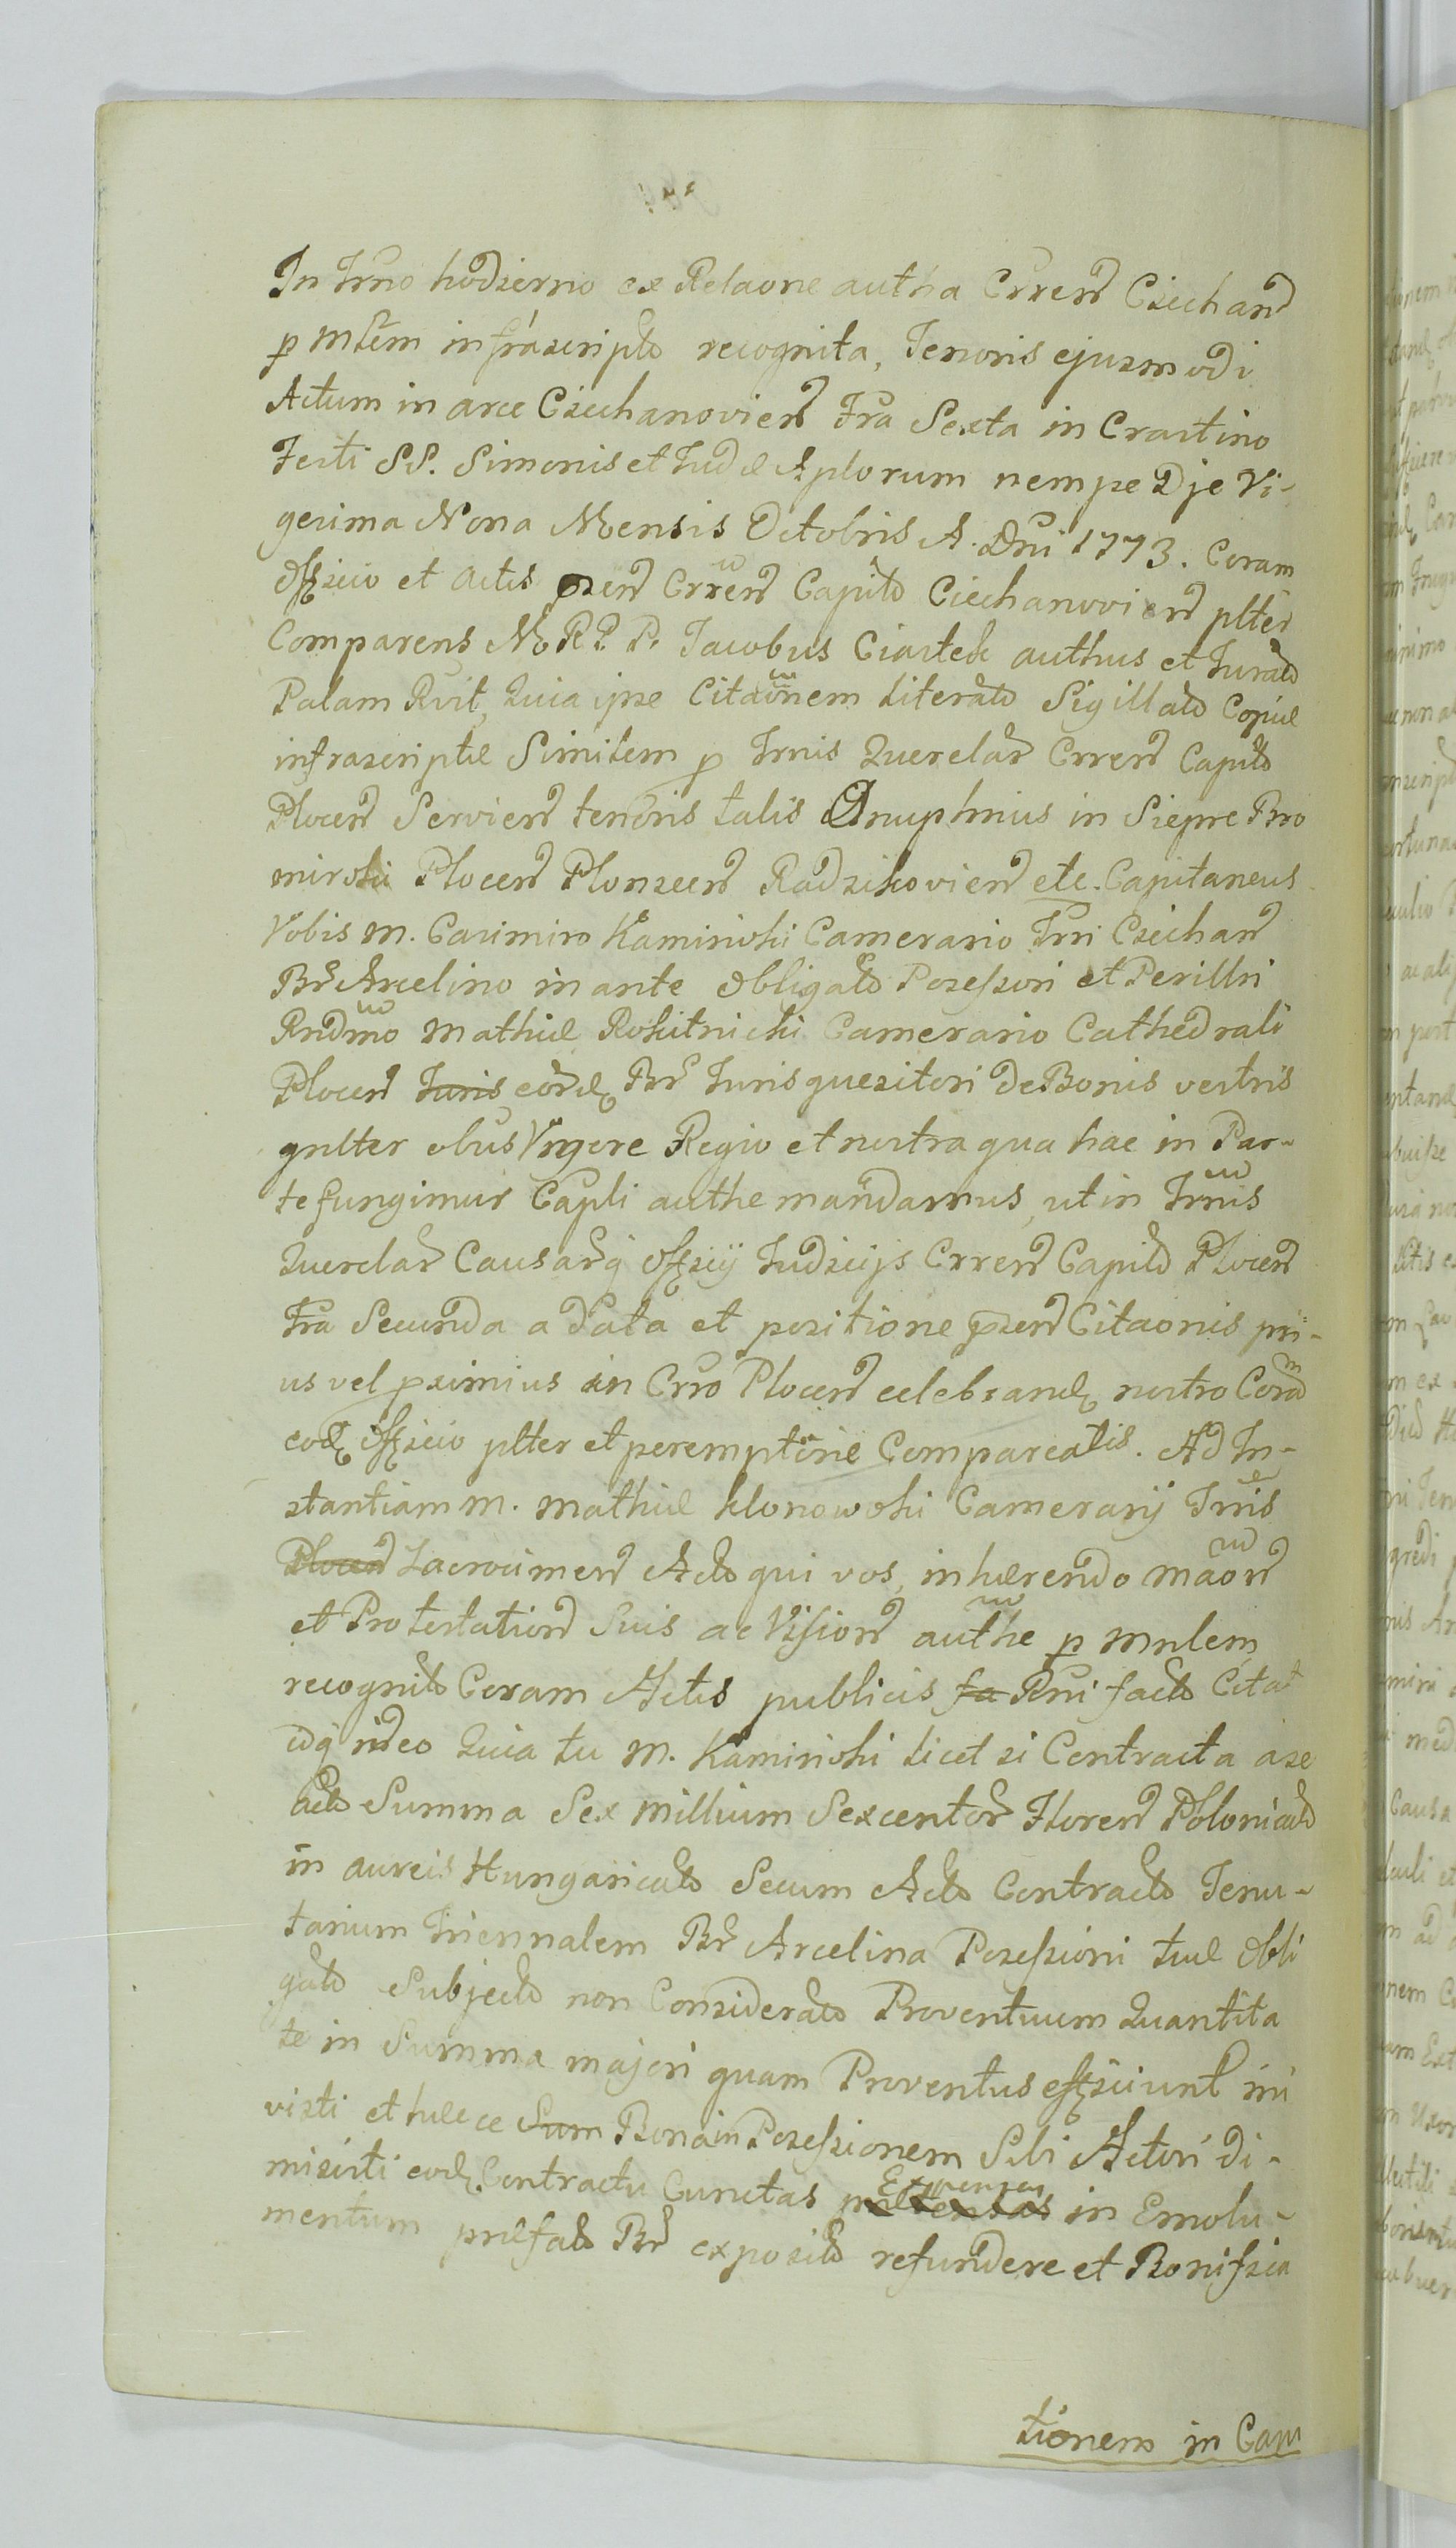 In Trno hodierno ex Relaone autha Crren Ciechan
p Mtem infrascripto recognita, Tenoris ejusmodi
Actum in arce Ciechanovien Fra Sexta in Crastino
Festi SS. Simonis et Judæ Aplorum nempe Die Vi-
gesima Nona Mensis Octobris A. Dni 1773. Coram
Officio et Actis pzen Crren Capito Ciechanovien plter
Comparens M. R. P. Jacobus Ciastek authus et Jurato
Palam Rvit, Quia ipse Citaonem Literato Sigillato Copiæ
infrascriptæ Similem p Trnis Querelar Crren Capito
Plocen Servien tenoris talis Onuphrius in Sieprc Bro
mirski Plocen Plonscen Radzikovien etc. Capitaneus
Vobis M. Casimiro Kaminski Camerario Trri Ciechan
Br Arcelino in ante Obligato Possessori et Perillri
Rndmo Mathiæ Rokitnicki Camerario Cathedrali
Plocen Juris eord Br Juris quesitori De Bonis vestris
gnlter obus Vigore Regio et nostra qua hac in Par-
te fungimur Capli authe mandamus, ut in Trnis
Querelar Causarq Officij Judicijs Crren Capito Plocen
Fra Secunda a Data et positione pzen Citaonis pri-
us vel pximius in Crro Plocen celebrand nostro Coram
eod Officio plter et peremptorie Compareatis. Ad In-
stantiam M. Mathiæ Klonowski Camerarij Trris
Plocen Zacrocimen Acto qui vos, inhærendo Maon
et Protestation Suis ac Vision authe p Mnlem
recognito Coram Actis publicis fa Rni facto Citat
idq ideo Quia tu M. Kaminski licet si Contracta a se
Acto Summa Sex Millium Sexcentor Floren Polonicalo
in aureis Hungaricalo Secum Acto Contracto Tenu-
tarium Triennalem Br Arcelina Possessioni tuæ Obli
gato Subjecto non Considerato Proventuum Quantita
te in Summa majori quam Proventus efficiunt ini
visti et hæcce Sum Bona in Possessionem Sibi Actori di-
misisti eod Contractu Cunctas Expensas in Emolu-
mentum præfato Br exposito refundere et Bonifica
tionem in Cam